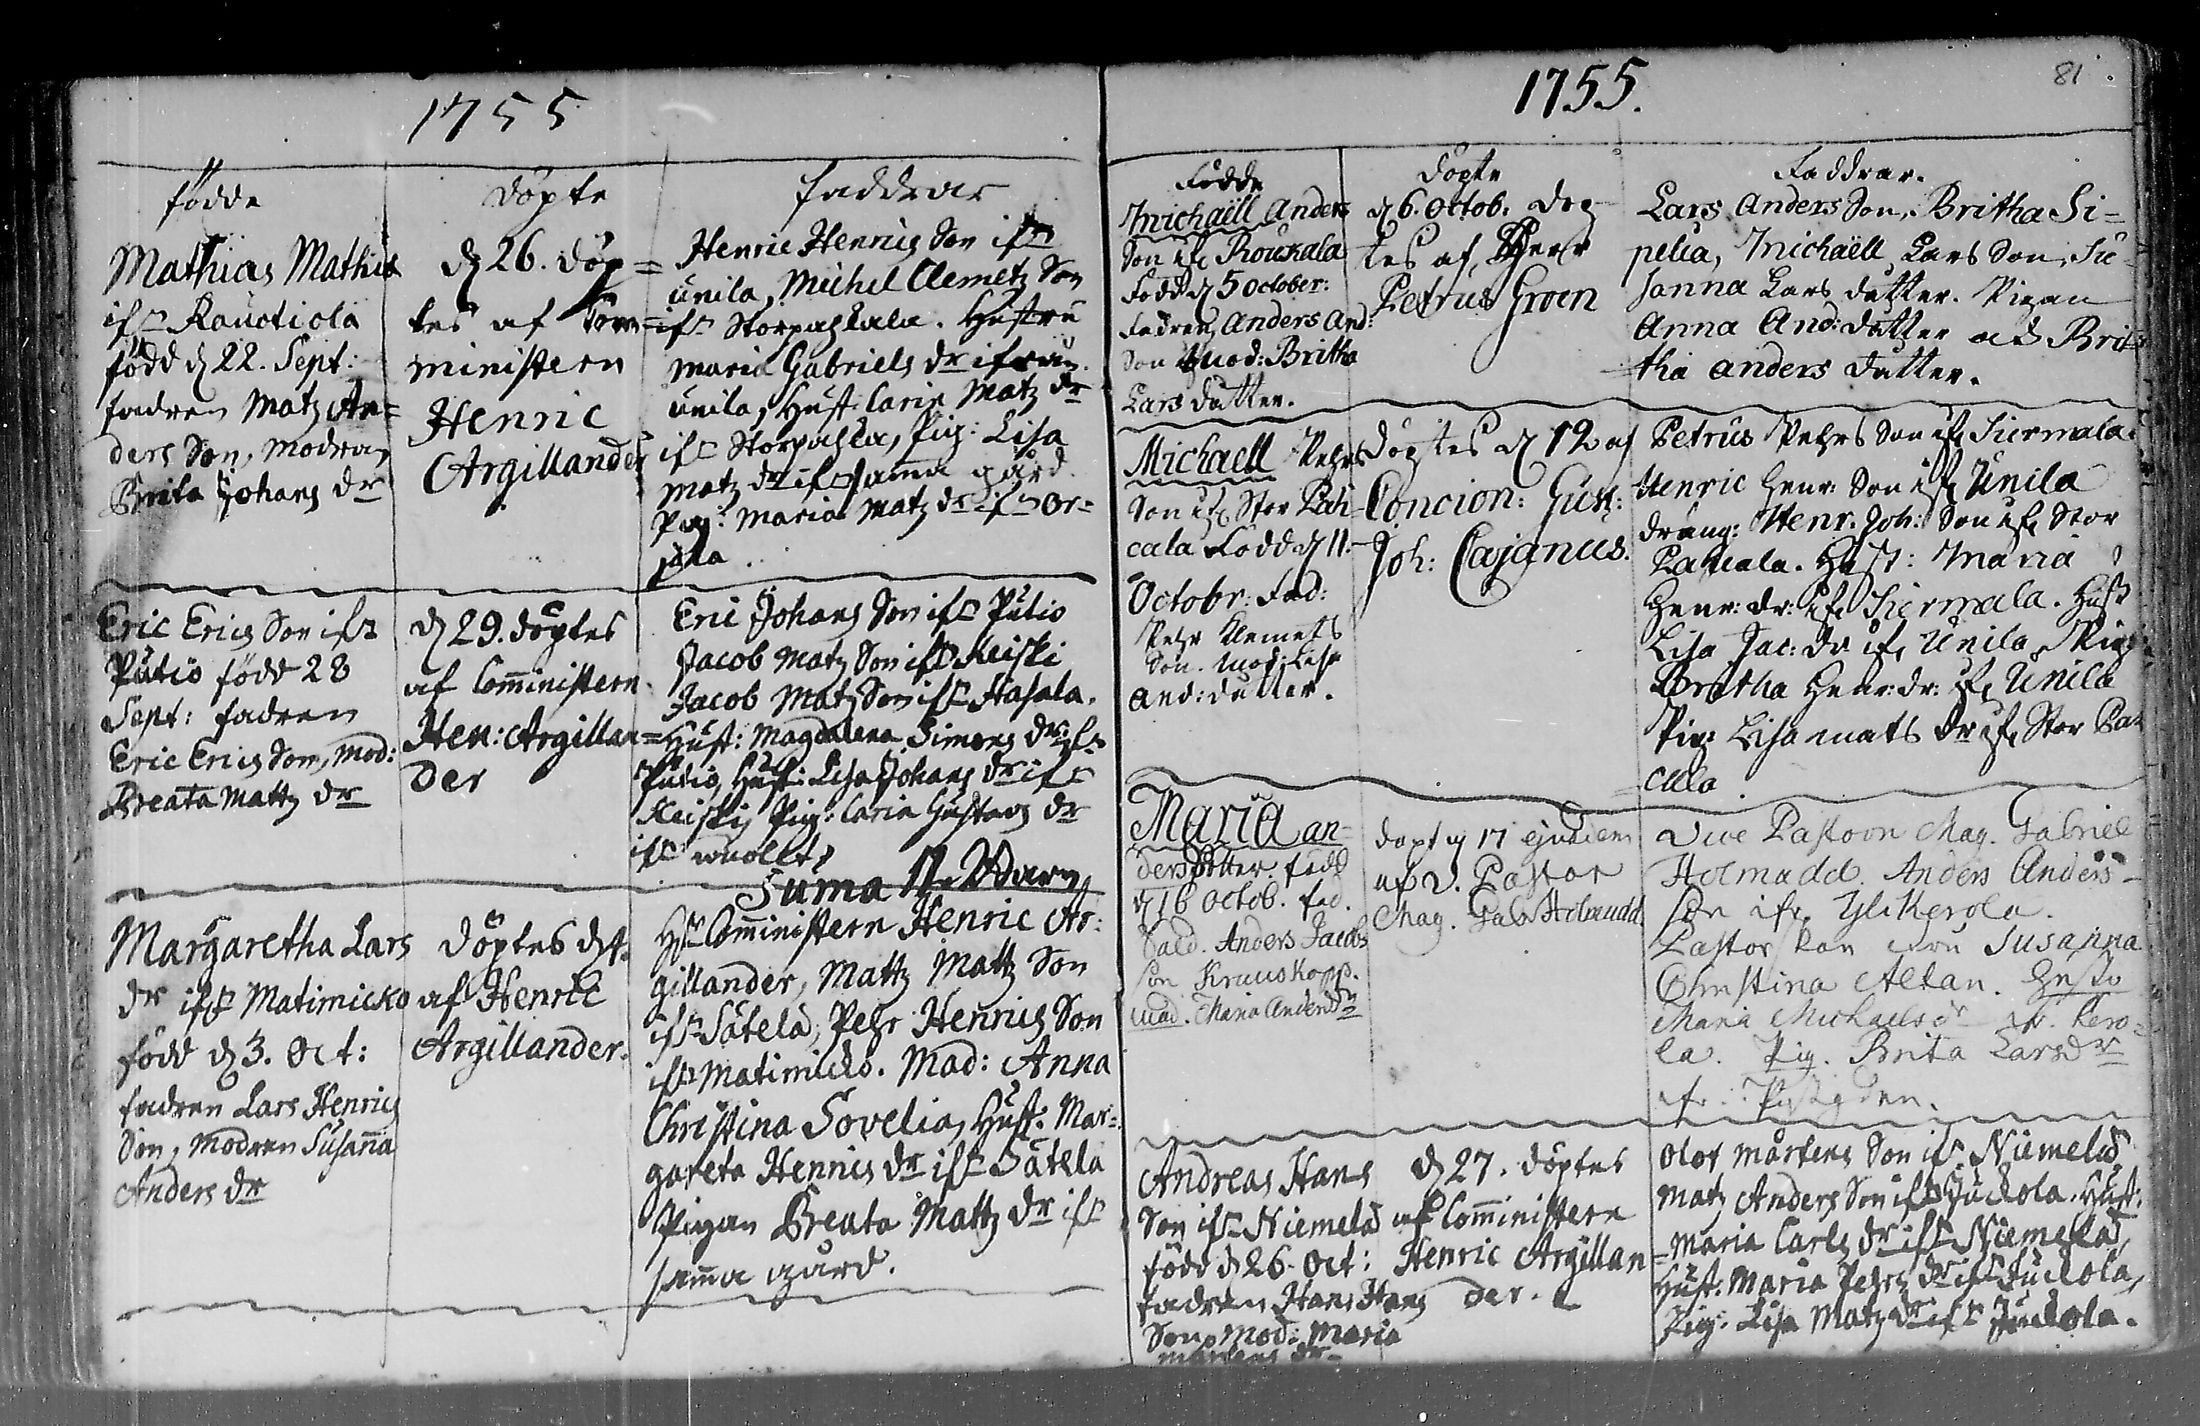 1755
födde
Döpte
faddrar
Mathias Mathis
ifr Rauctiola
född d 22. Sept:
fadren Matz An=
ders Son, modren
Brita Johans dr
d 26. döp=
tes af Com=
ministern
Henric
Argillander
Henric Henrics Son ifr
unila, Michel Clemetz Son
ifr Storpahkala. Hustru
Maria Gabriels dr ifrån
unila, Hust: Carin Matz dr
ifr Storpahka, Pig: Lisa
Matz dr ifr samma gård
Pig: Maria Matz dr ifr Or=
jola.
Eric Erics Son ifr
Putio född 28
Sept: fadren
Eric Erics Son, Mod:
Breata Mattz dr
d 29. döptes
af Comministern
Hen: Argillan=
der
Eric Johans Son ifr Putio
Jacob Matz Son ifr Keiski
Jacob Matz Son ifr Hasala.
Hust: Magdalena Simons dr ifr
Putio, Hust: Lisa Johans dr ifr
Keiski, Pig: Carin Gustavs dr
ifr
Suma 11. Barn
Margaretha Lars
dr ifr Matimicko
född d 3. Oct:
fadren Lars Henrics
Son, modren Susanna
Anders dr
Döptes d 4.
af Henric
Argillander.
Hr Comministern Henric Ar:
gillander, Mattz Mattz Son
ifr Sätelä, Pehr Henrics Son
ifr Matimicko. Mad: Anna
Christina Sovelia, Hust: Mar=
gareta Henrics dr ifr Sätelä
Pigan Breata Mattz dr ifr
samma gård.
1755.
81
Födde
Döpte
Faddrar.
Michaëll Anders
Son if. Roukala
Född d 5 October:
Fadren Anders And:
Son Mod: Britha
Lars dutter.
d 6. Octob. döp
tes af Herr
Petrus Groen
Lars Anders Son, Britha Si=
pelia, Michaëll Lars Son, Su=
sanna Lars dutter. Pigan
Anna And: dutter och Bri=
tha anders dutter.
Michaell Pehrs
Son if. Stor Pah
cala Född d 11.
Octobr: Fad:
Pehr Klemets
Son. Mod: Lisa
And: dutter.
döptes d 12 af
Concion: Gust:
Joh: Cajanus.
Petrus Pehrs Son if. Siermala.
Henric Henr: Son if. Unila
dräng: Henr. Joh: Son if. Stor
Pahcala. Hust: Maria
Henr: dr: if. Siermala. Hust
Lisa Jac: dr if. Unila, Pig:
Britha Henr: dr: if. Unila
Pig: Lisa mats dr if. Stor Pah
cala
Maria an=
dersdotter. född
d 16 Octob. fad.
Sald. Anders Jacobs
son Krauskopp.
mod. Maria Andersdr
döpt d 17 ejusdem
af V. Pastor
Mag. Gabr Holmudd
Vice Pastorn Mag. Gabriel
Holmudd. Anders Anders-
son ifr. Ylikerola.
Pastorskan Fru Susanna
Christina Alstan. Hustr
Maria Michaelsdr ifr. Kero=
la. Pig. Brita Larsdr
ifr. Prästgården.
Andreas Hans
Son ifr Niemelä
född d 26. Oct:
fadren Hans Hans
Son, Mod: Maria
Mårtens dr
d 27. döptes
af Comministern
Henric Argillan
der.
Olof Mårtens Son ifr Niemelä
Matz Anders Son ifr Juckola. Hust:
Maria Carls dr ifr Niemelä,
Hust: Maria Pehrs dr ifr Juckola,
Pig: Lisa Matz dr ifr Juckola.